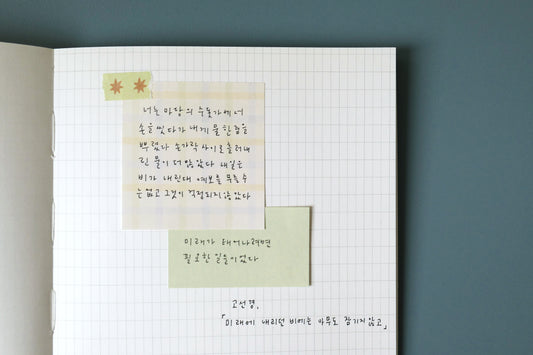 너는 마당의 수돗가에서
손을 씻다가 내게 물 한 줌을
뿌렸다 손가락 사이로 흘러내
린 물이 더 많았다 내일은
비가 내린대 예보를 믿을 수
는 없고 그것이 걱정되지 않았다
미래가 태어나려면
필요한 일들이었다
고선경,
「미래에 내리던 비에는 아무도 잠기지 않고」